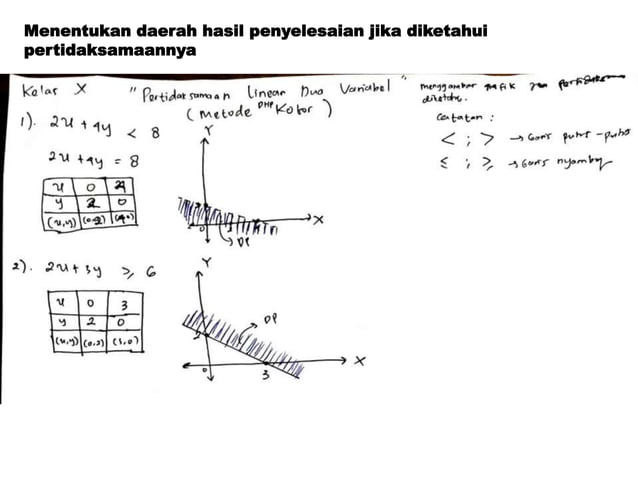 Menentukan daerah hasil penyelesaian jika diketahui
pertidaksamaannya
Kelas X
"Pertidaksamaan Linear Dua Variabel"
(Metode DHP Kotor)
menggambar grafik
diketahui.
Catatan :
< ; > → Garis putus-putus
≤ ; ≥ → Garis nyambung
1). 2x + 4y < 8
2x + 4y = 8
x 0 4
y 2 0
(x,y) (0,2) (4,0)
Y
X
DP
2). 2x + 3y ≥ 6
x 0 3
y 2 0
(x,y) (0,2) (3,0)
Y
DP
2
0
3
X